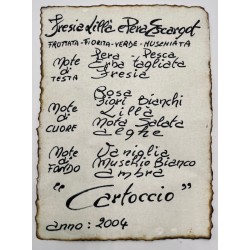 Fresia Lillà e Pera Escargot
FRUTTATA-FIORITA-VERDE-MUSCHIATA
Note di TESTA
Pera - Pesca
Erba tagliata
Fresia
Note di CUORE
Rosa
Fiori Bianchi
Lillà
Nota Salata
Alghe
Note di FONDO
Vaniglia
Muschio Bianco
Ambra
"Cartoccio"
anno: 2004